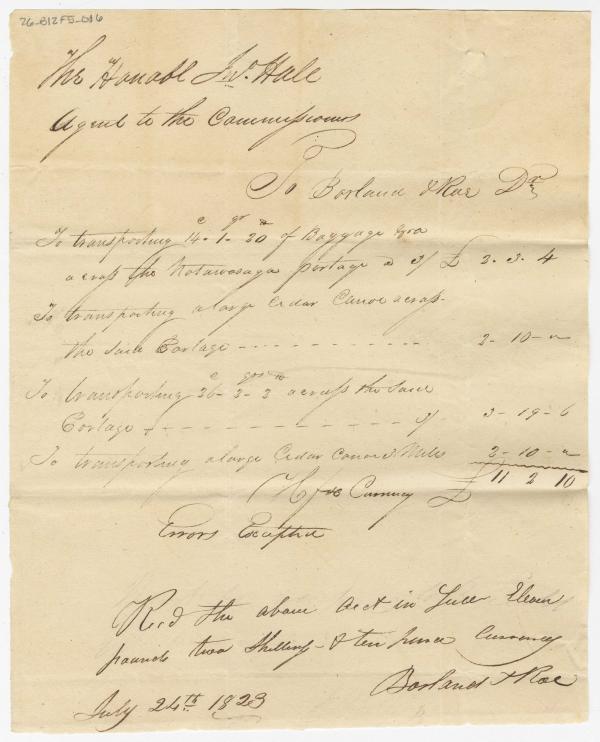 26-B12F5-016
The Honable Jno. Hale
Agent to the Commissioners
To Borland & Roe Dr
c qr lb
To transporting 14-1-20 of Baggage &ca
across the Notawasaga portage @ 3/ £ 2-3-4
To transporting a large Cedar Canoe across
the said Portage - - - - - - - - - - - 2-10-"
c qrs lb
To transporting 26-2-2 across the said
Portage - - - - - - - - - - - - 3/ 3-19-6
To transporting a large Cedar Canoe Miles 2-10-"
Currency £ 11 2 10
Errors Excepted
Recd the above acct in full Eleven
pounds two Shillings & ten pence Currency
Borland & Roe
July 24th 1823